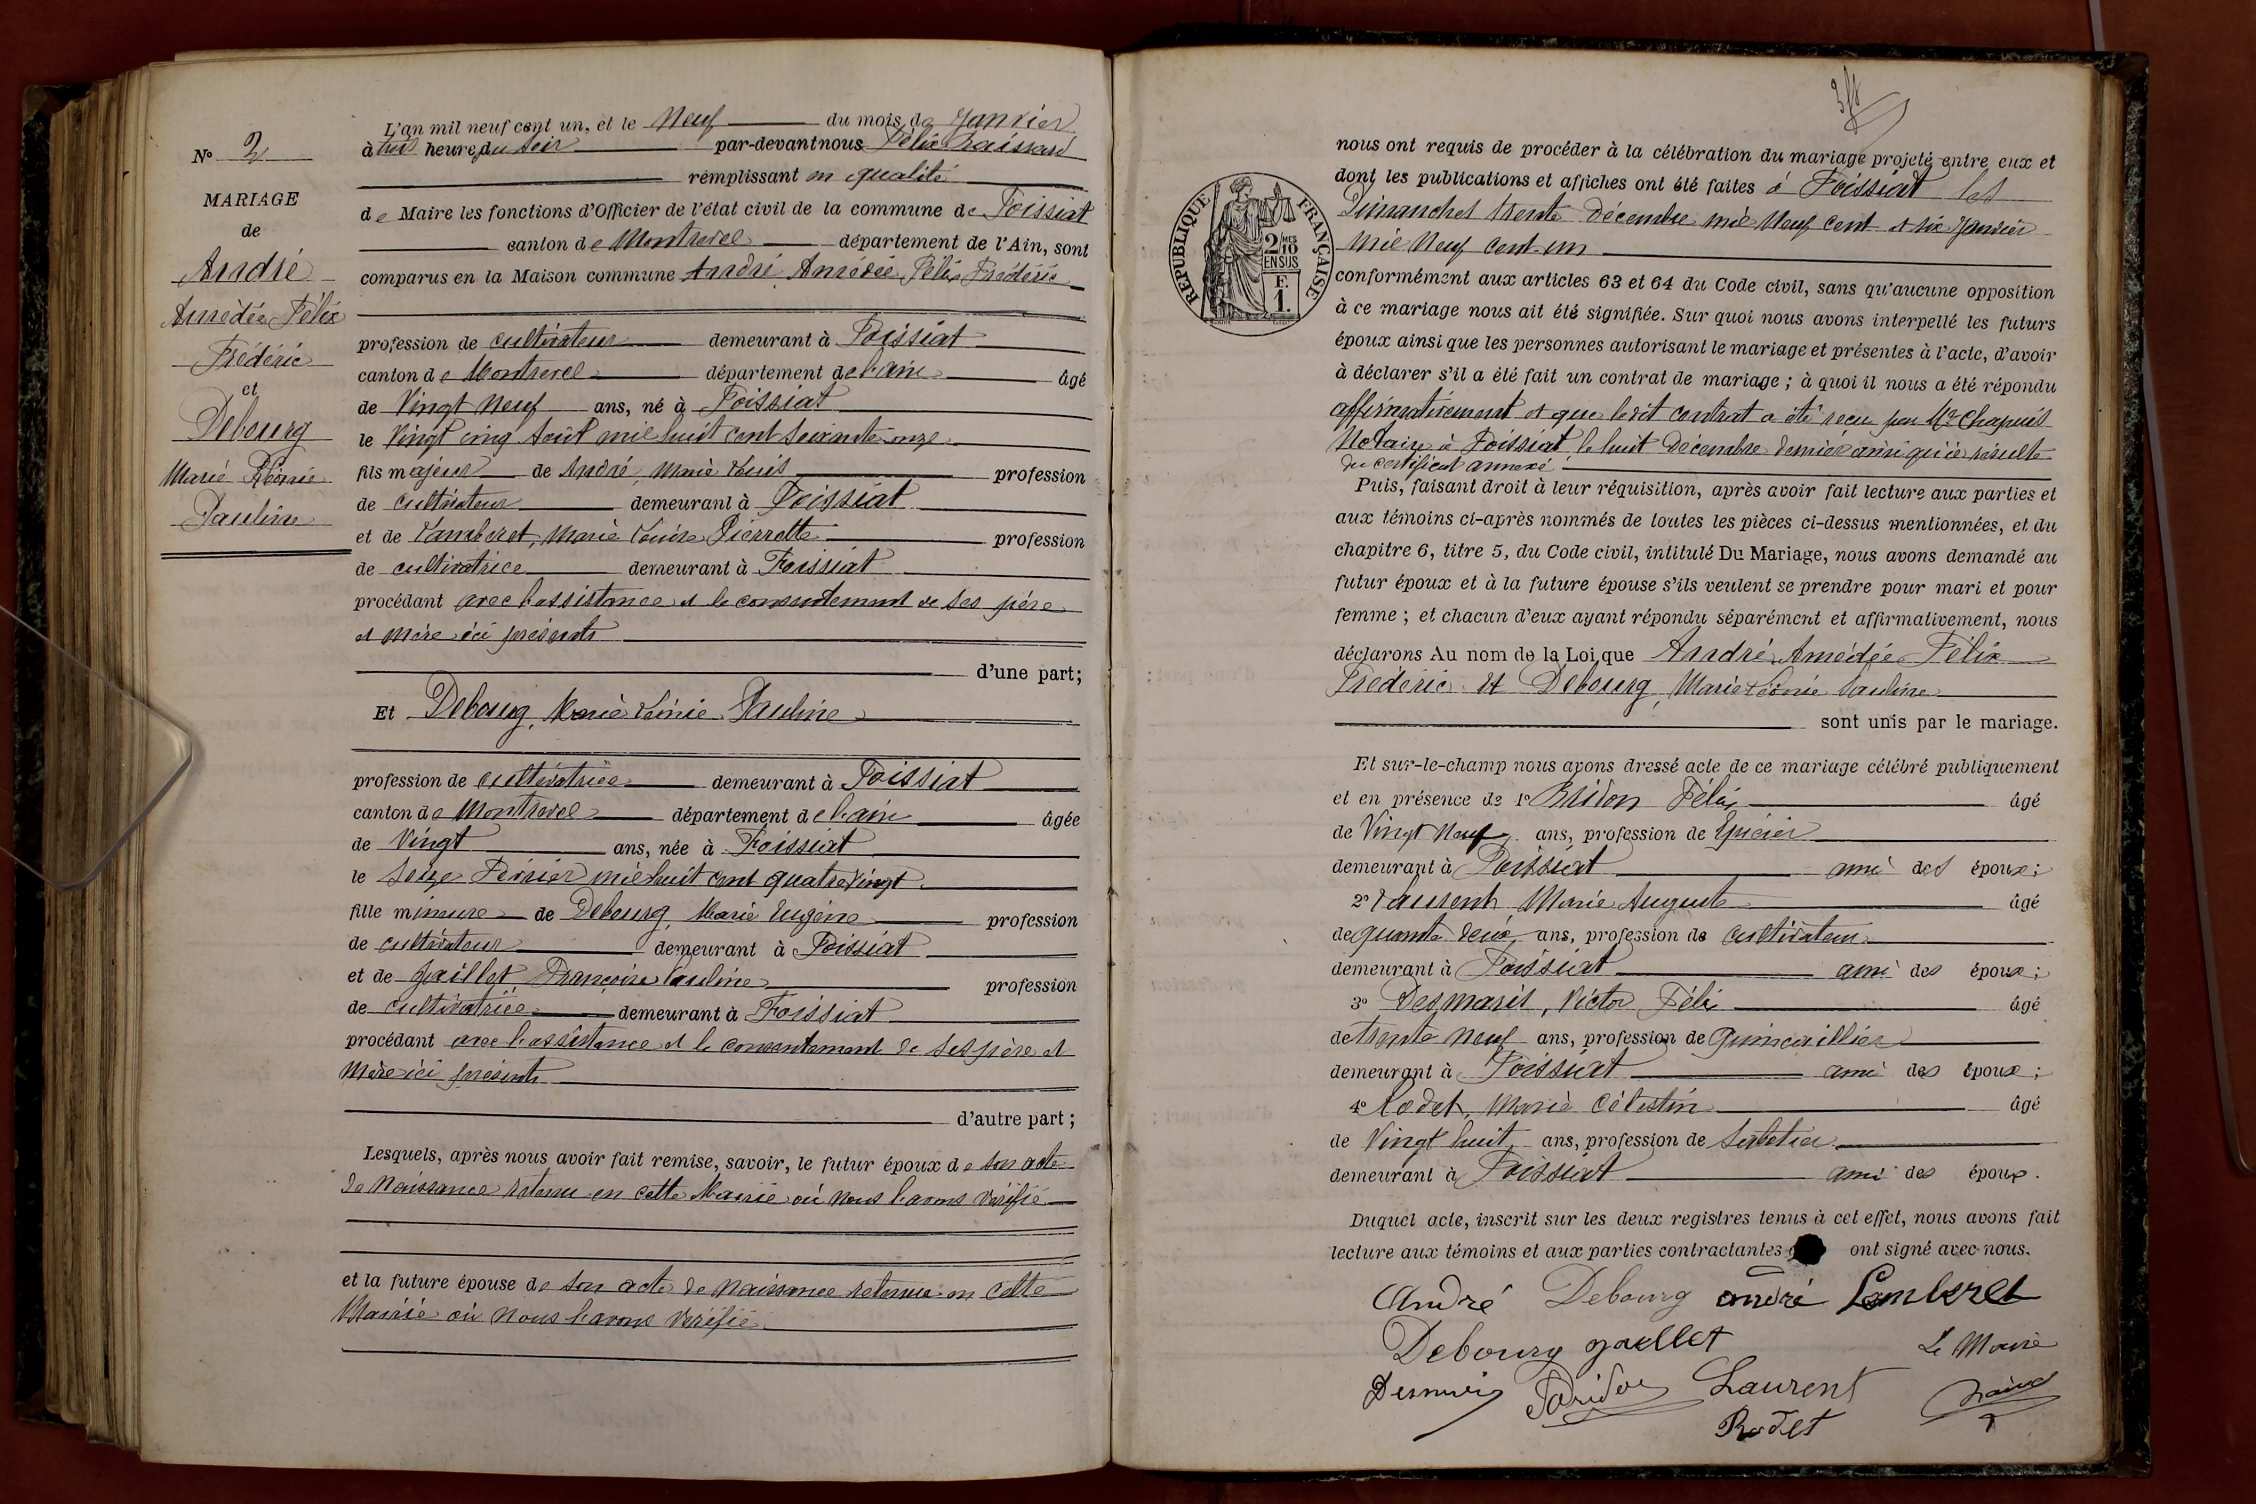 N° 2
MARIAGE
de
André
Amédée Félix
Frédéric
et
Debourg
Marie Léonie
Pauline
L'an mil neuf cent un, et le Neuf du mois de Janvier
à trois heures du soir par-devant nous Félix
remplissant en qualité
de Maire les fonctions d'Officier de l'état civil de la commune de Foissiat
canton de Montrevel département de l'Ain, sont
comparus en la Maison commune André, Amédée Félix Frédéric
profession de cultivateur demeurant à Foissiat
canton de Montrevel département de l'ain âgé
de Vingt Neuf ans, né à Foissiat
le Vingt cinq Août mil huit cent soixante onze
fils majeur de André, Marie Louis profession
de cultivateur demeurant à Foissiat
et de Lamberet, Marie Louise Pierrette profession
de cultivatrice demeurant à Foissiat
procédant avec l'assistance et le consentement de ses père
et mère ici présents
d'une part;
Et Debourg, Marie Léonie Pauline
profession de cultivatrice demeurant à Foissiat
canton de Montrevel département de l'ain âgée
de Vingt ans, née à Foissiat
le Seize Février mil huit cent quatre Vingt
fille mineure de Debourg Marie Eugène profession
de cultivateur demeurant à Foissiat
et de Gaillet, Françoise Pauline profession
de cultivatrice demeurant à Foissiat
procédant avec l'assistance et le consentement de ses père et
Mère ici présents
d'autre part;
Lesquels, après nous avoir fait remise, savoir, le futur époux de son acte
de Naissance retenu en cette Mairie où nous l'avons vérifié
et la future épouse de son acte de Naissance retenue en cette
Mairie où nous l'avons vérifié
nous ont requis de procéder à la célébration du mariage projeté entre eux et
dont les publications et affiches ont été faites à Foissiat les
Dimanches trente Décembre mil Neuf cent et six Janvier
mil Neuf cent un
RÉPUBLIQUE FRANÇAISE
2/10 MES
EN SUS
E.
1.
conformément aux articles 63 et 64 du Code civil, sans qu'aucune opposition
à ce mariage nous ait été signifiée. Sur quoi nous avons interpellé les futurs
époux ainsi que les personnes autorisant le mariage et présentes à l'acte, d'avoir
à déclarer s'il a été fait un contrat de mariage; à quoi il nous a été répondu
affirmativement et que ledit contrat a été recu par Me Chapuis
Notaire à Foissiat le huit Décembre dernier ainsi qu'il résulte
du certificat annexé
Puis, faisant droit à leur réquisition, après avoir fait lecture aux parties et
aux témoins ci-après nommés de toutes les pièces ci-dessus mentionnées, et du
chapitre 6, titre 5, du Code civil, intitulé Du Mariage, nous avons demandé au
futur époux et à la future épouse s'ils veulent se prendre pour mari et pour
femme; et chacun d'eux ayant répondu séparément et affirmativement, nous
déclarons Au nom de la Loi que André, Amédée Félix
Frédéric et Debourg, Marie Léonie Pauline
sont unis par le mariage.
Et sur-le-champ nous avons dressé acte de ce mariage célébré publiquement
et en présence de 1° Bridon Félix âgé
de Vingt Neuf ans, profession de Epicier
demeurant à Foissiat ami des époux;
2° Laurent Marie Auguste âgé
de quarante deux ans, profession de cultivateur
demeurant à Foissiat ami des époux;
3° Desmaris, Victor Félix âgé
de trente neuf ans, profession de Quincaillier
demeurant à Foissiat ami des époux;
4° Rodet, Marie Célestin âgé
de Vingt huit ans, profession de Sabotier
demeurant à Foissiat ami des époux.
Duquel acte, inscrit sur les deux registres tenus à cet effet, nous avons fait
lecture aux témoins et aux parties contractantes ont signé avec nous.
André Debourg andré Lamberet
Debourg gaillet Le Maire
Desmaris Bridon Laurent
Rodet